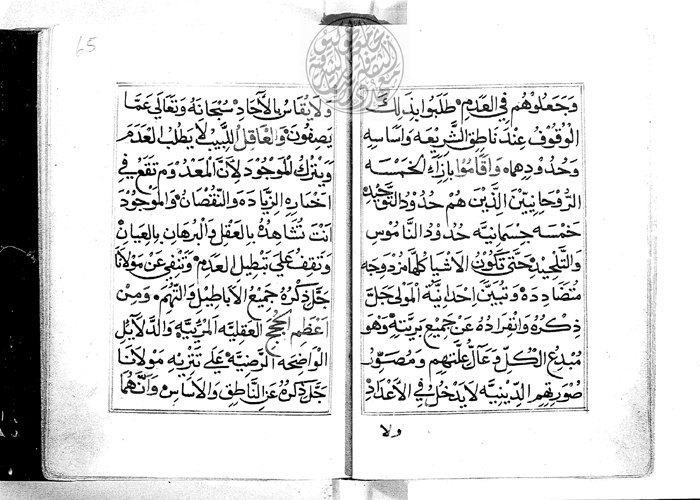 وَجَعَلُوْهُم في العَدَمِ طَلَبُوا بِذَلِكَ
الوُقُوْفَ عِنْدَ نَاطِقِ الشَّرِيْعَه وَاَسَاسِهِ
وَحُدُوْدِهِمَا وَاَقَامُوا بِاِزَآءِ الخَمْسَه
الرُّوْحَانِيِّيْنَ الَّذِيْنَ هُم حُدُوْدُ التَّوْحِيْدِ
خَمْسَه جِسْمَانِيَّه حُدُوْدُ النَّامُوْسِ
وَالتَّلْحِيْدِ حَتَّى تَكُوْنَ الاَشْيَا كُلّهَا مُزْدَوِجه
مُتَضَادِدَه وَتُبَيِّنَ اِحْدَانِيَّة المَوْلَى جَلَّ
ذِكْرُه وَانْفِرَادُهُ عَنْ جَمِيْعِ بَرِيَّتِهِ وَهُوَ
مُبْدِعُ الكُلِّ وَعَآلُّ عِلَّتِهِم وَمُصَوِّرُ
صُوَرِهِمِ الدِّيْنِيَّه لَا يَدْخُلُ فِي الاَعْدَادِ
ولا
65
وَلَا يُقَاسُ بِالآحَادِ سُبْحَانَهُ وَتَعَالَى عَمَّا
يَصِفُوْنَ وَالعَاقِلُ اللَّبِيْبُ لَا يَطْلُبُ العَدَمَ
وَيَتْرُكُ المَوْجُودَ لِاَنَّ المَعْدُوْمَ تَقَعُ فِي
اَخْبَارِهِ الزِّيَادَه وَالنُّقْصَانُ وَالمَوْجُودَ
اَنْتَ تُشَاهِدُهُ بِالعَقْلِ وَالبُرهَانِ بِالعِيَانِ
وَتَقِفُ عَلَى تَبْطِيلِ العَدَمِ وَتَنْفِي عَنْ مَوْلَانَا
جَلَّ ذِكْرُهُ جَمِيْعَ الاَبَاطِيْلِ وَالتُّهَمِ وَمِنْ
اَعْظَمِ الحُجَجِ العَقْلِيَّه المَرْئِيَّه وَالدَّلَآئِلِ
الوَاضِحَه الرَّضِيَّه عَلَى تَنْزِيْهِ مَوْلَانَا
جَلَّ ذِكْرُهُ عَنِ النَّاطِقِ وَالاَسَاسِ وَاَنَّهُمَا